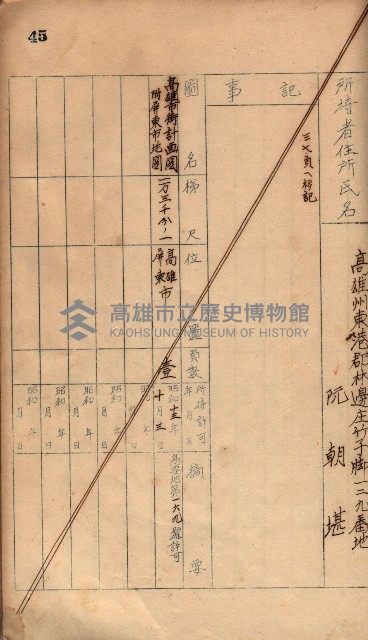 45
所持者住所氏名
高雄州東港郡林邊庄竹子脚一三九番地
阮朝堪
記事
三七頁へ移記
圖名
梯尺
位置
員數
所持許可年月日
摘要
高雄市街計画圖
附屏東市地圖
一万三千分ノ一
高雄
屏東市
壹
昭和十三年十月三日
高要地第一六九號許可
昭和 年 月 日
昭和 年 月 日
昭和 年 月 日
昭和 年 月 日
昭和 年 月 日
高雄市立歷史博物館
KAOHSIUNG MUSEUM OF HISTORY